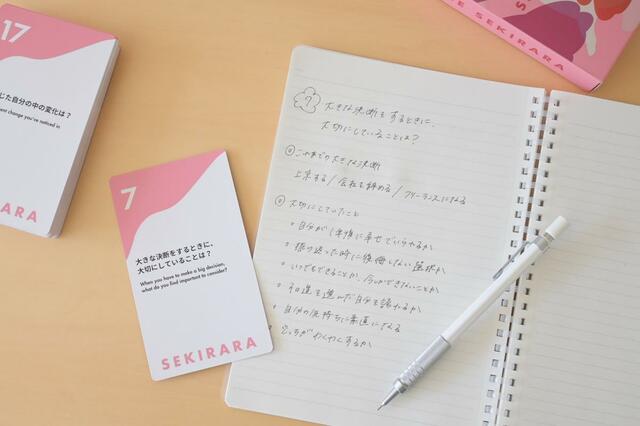 17
じた自分の中の変化は？
ent change you've noticed in
RARA
7
大きな決断をするときに、
大切にしていることは？
When you have to make a big decision,
what do you find important to consider?
SEKIRARA
E SEKIRARA
7
大きな決断をするときに、
大切にしていることは？
これまでの大きな決断
上京する/会社を辞める/フリーランスになる
大切にしていたこと
・自分が1年後に幸せでいられるか
・振り返った時に後悔しない選択か
・いつでもできることか、今しかできないことか
・その道を進んだ自分を誇れるか
・自分の気持ちに素直になる
・どっちがわくわくするか